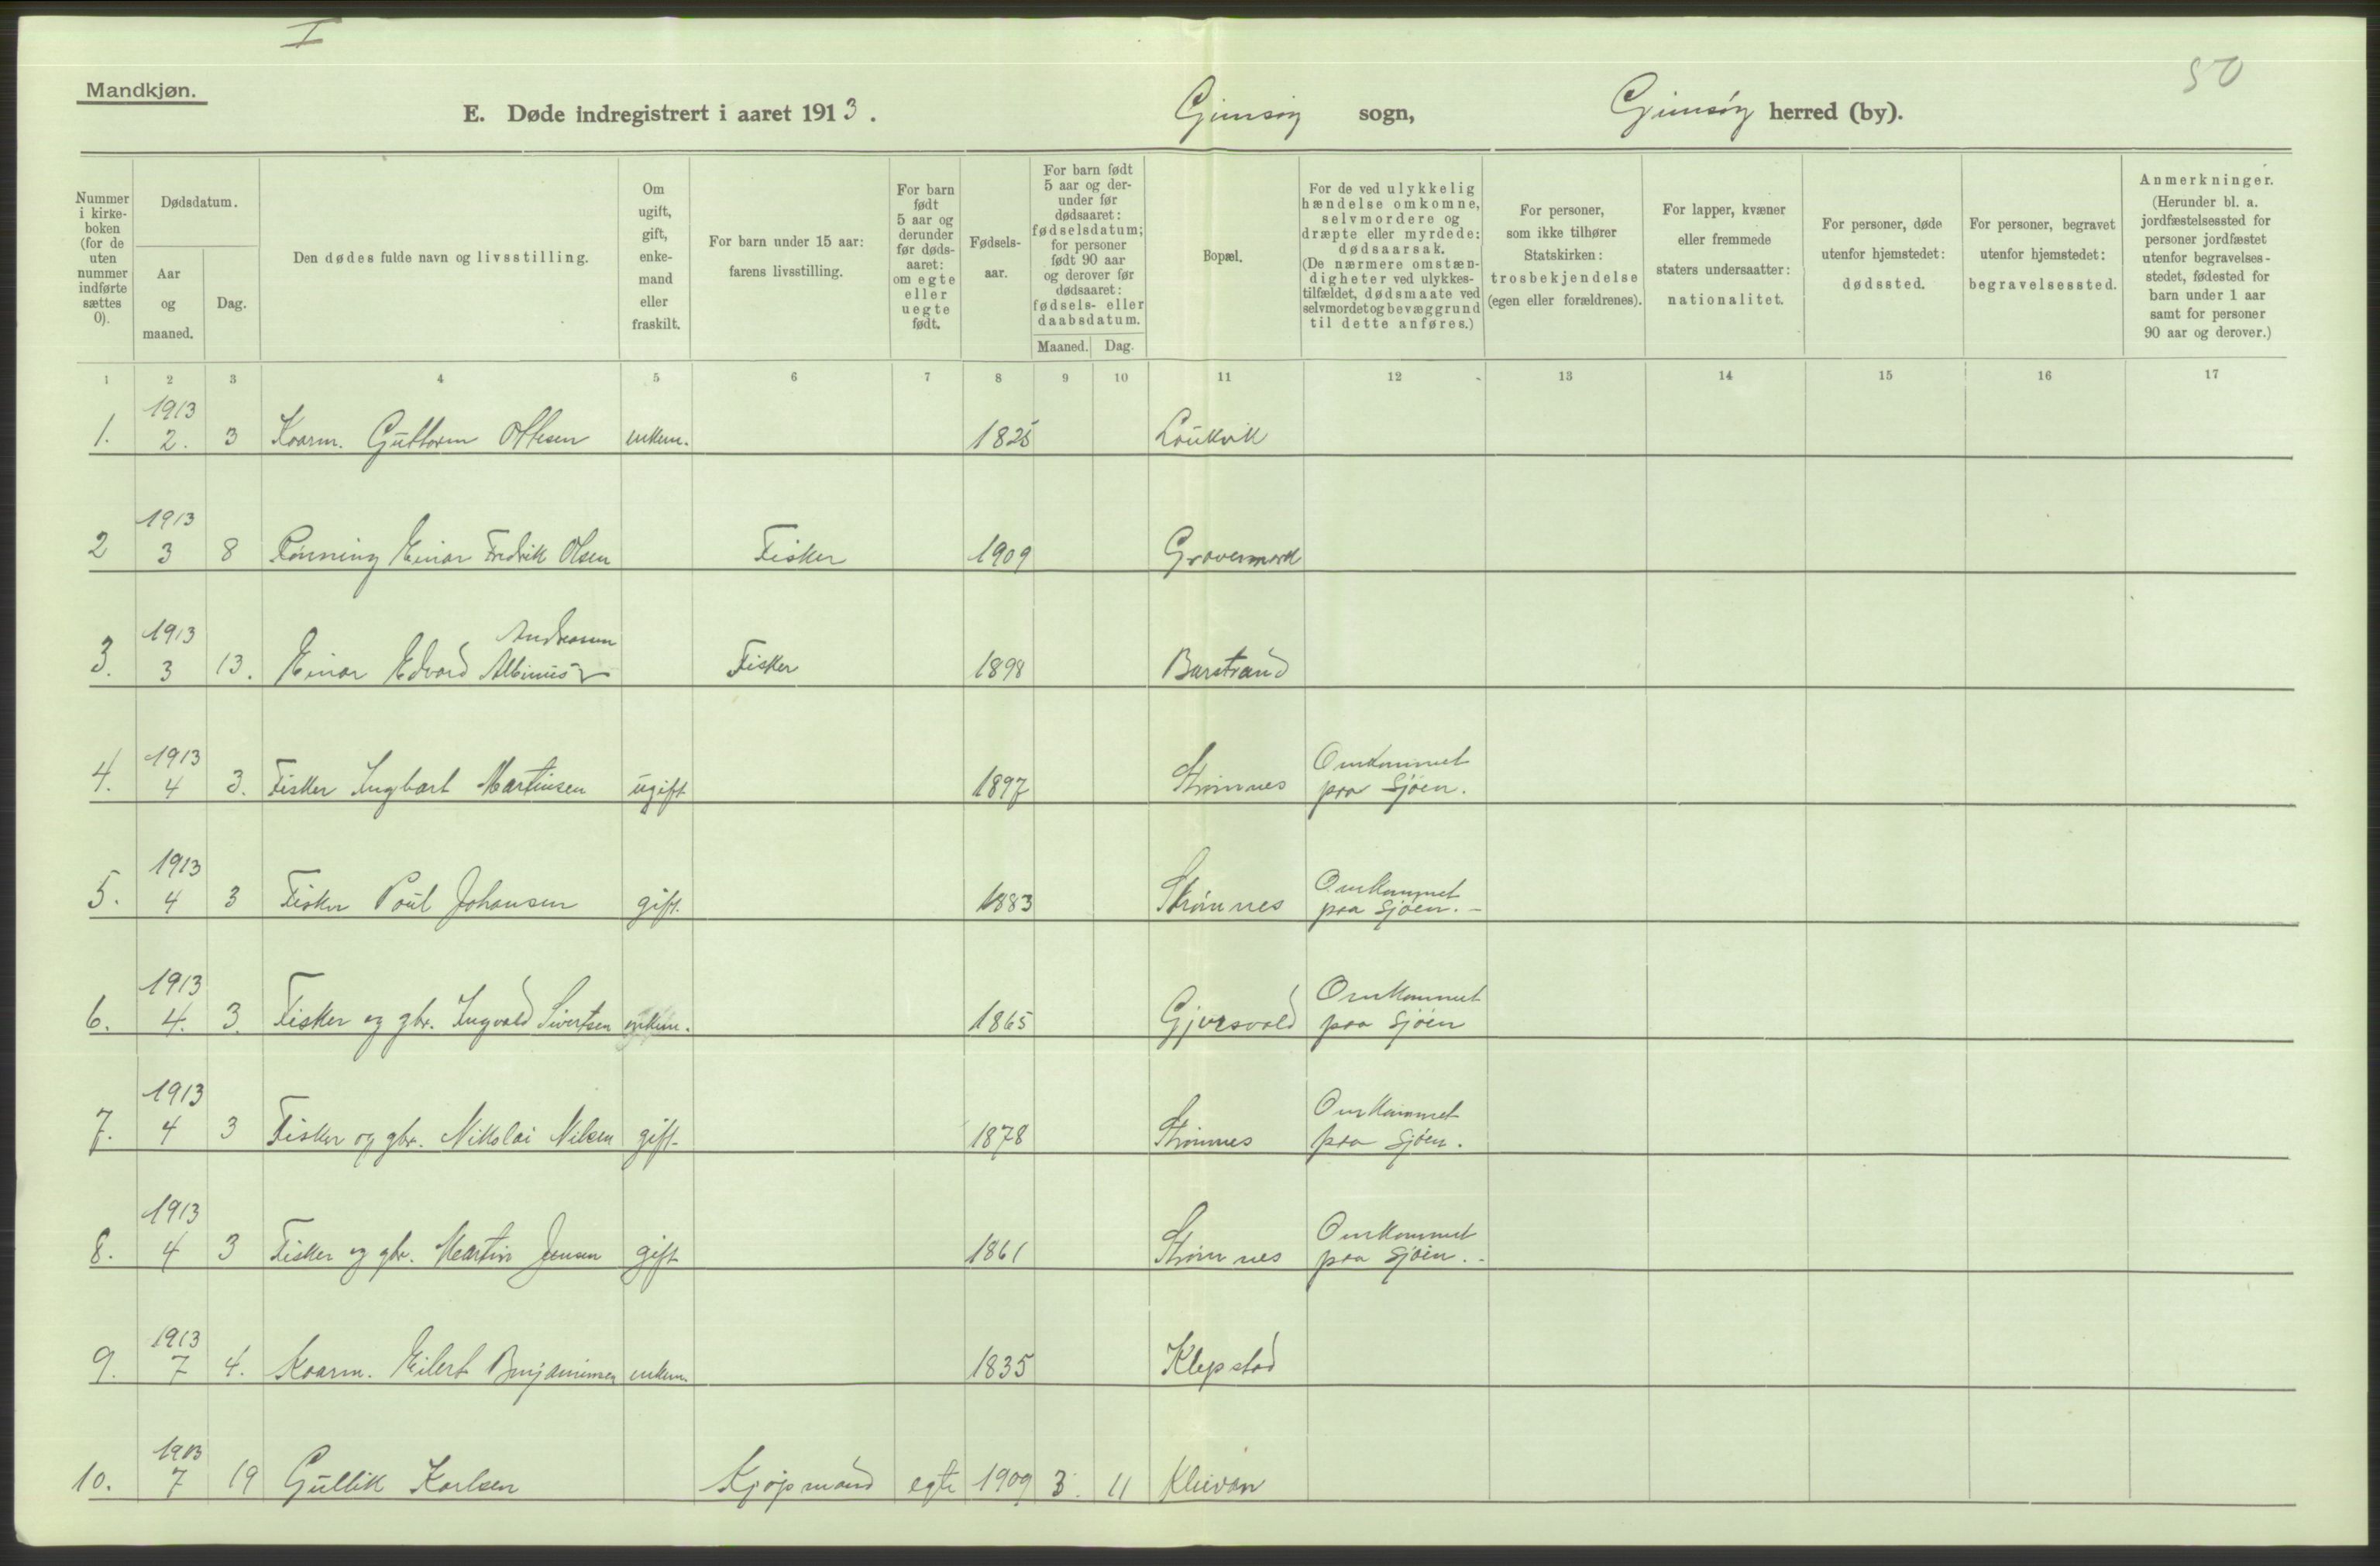 I
50
Mandkjøn.
E. Døde indregistrert i aaret 1913. Gimsøy sogn, Gimsøy herred (by).
Nummer i kirke- boken (for de uten nummer indførte sættes 0).
Dødsdatum.
Aar og maaned.
Dag.
Den dødes fulde navn og livsstilling.
Om ugift, gift, enke- mand eller fraskilt.
For barn under 15 aar: farens livsstilling.
For barn født 5 aar og derunder før døds- aaret: om egte eller uegte født.
Fødsels- aar.
For barn født 5 aar og der- under før dødsaaret: fødselsdatum; for personer født 90 aar og derover før dødsaaret: fødsels- eller daabsdatum.
Maaned. Dag.
Bopæl.
For de ved ulykkelig hændelse omkomne, selvmordere og dræpte eller myrdede: dødsaarsak. (De nærmere omstæn- digheter ved ulykkes- tilfældet, dødsmaate ved selvmordet og bevæggrund til dette anføres.)
For personer, som ikke tilhører Statskirken: trosbekjendelse (egen eller forældrenes).
For lapper, kvæner eller fremmede staters undersaatter: nationalitet.
For personer, døde utenfor hjemstedet: dødssted.
For personer, begravet utenfor hjemstedet: begravelsessted.
Anmerkninger. (Herunder bl. a. jordfæstelsessted for personer jordfæstet utenfor begravelses- stedet, fødested for barn under 1 aar samt for personer 90 aar og derover.)
1 2 3 4 5 6 7 8 9 10 11 12 13 14 15 16 17
1913
1. 2. 3 Kaarm. Guttorm Ottesen enkem. 1825 Laukvik
1913
2 3 8 Rønning Einar Fredrik Olsen Fisker 1909 Gravermark
1913 Andreasen
3. 3 13. Einar Edvard Albinius Fisker 1898 Barstrand
1913 Omkommet
4. 4 3. Fisker Ingbart Martinsen ugift 1897 Strømnes paa Sjøen.
1913 Omkommet
5. 4 3 Fisker Paul Johansen gift. 1883 Strømnes paa Sjøen. -
1913 Omkommet
6. 4. 3. Fisker og gbr. Ingvald Sivertsen enkem. 1865 Gjersvold paa Sjøen
1913 Omkommet
7. 4 3 Fisker og gbr. Nikolai Nilsen gift 1878 Strømnes paa Sjøen.
1913 Omkommet
8. 4 3 Fisker og gbr. Martin Jensen gift 1861 Strømnes paa Sjøen. -
1913
9. 7 4. Kaarm. Eilert Benjaminsen enkem. 1835 Klepstad
1913
10. 7 19 Gullik Karlsen Kjøpmand egte 1909 3. 11